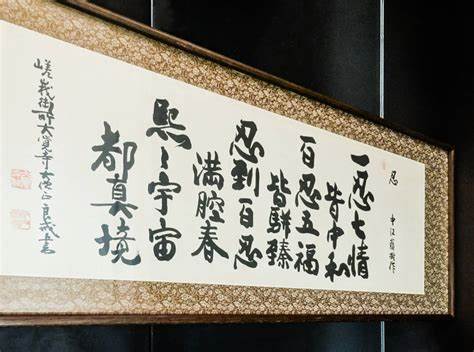 忍
中江藤樹作
一忍七情
皆中和
百忍五福
皆駢臻
忍到百忍
満腔春
熙々宇宙
都真境
嵯峨御所大覚寺大僧正良戒書